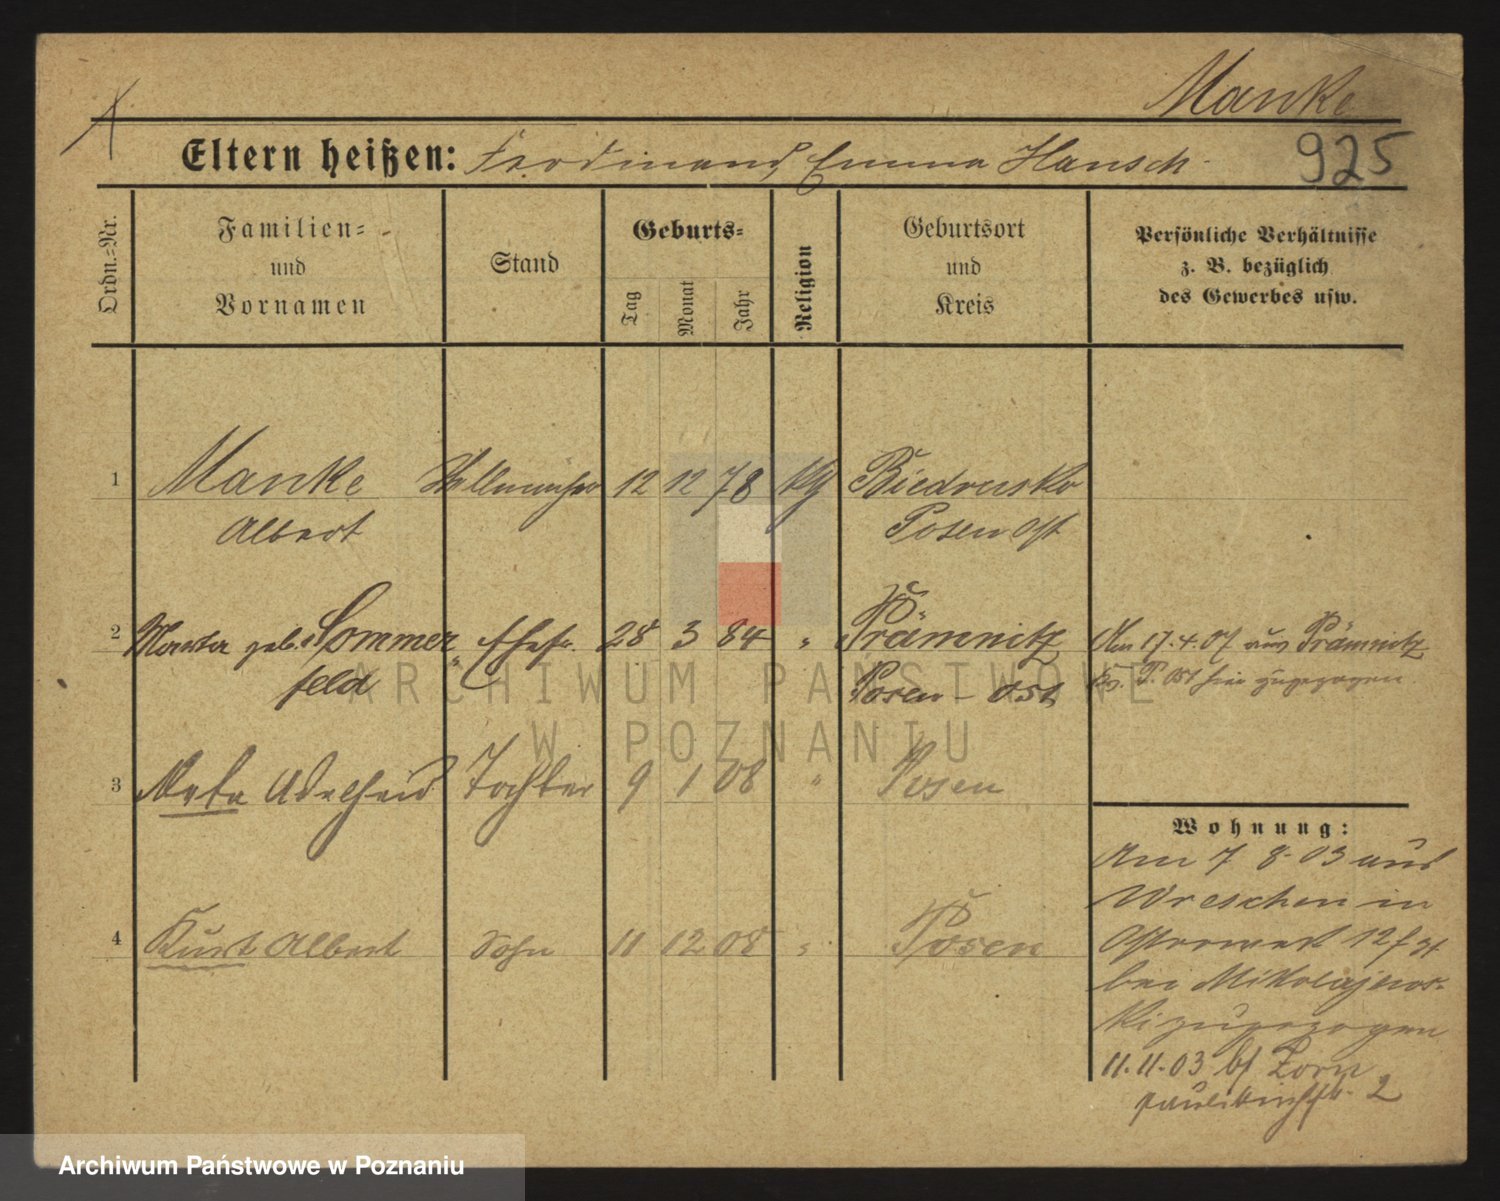 Manke
925
Eltern heißen: Ferdinand, Emma Hansch
Ordn.-Nr.
Familien-
und
Vornamen
Stand
Geburts-
Tag
Monat
Jahr
Religion
Geburtsort
und
Kreis
Persönliche Verhältnisse
z. B. bezüglich
des Gewerbes usw.
1 Manke 12 12 78 Biedrusko
Albert Posen Ost
2 geb. Sommer Ehefr. 28 3 84 " Prämnitz Am 17.4.07 aus Prämnitz
feld Posen-Ost P. Ost hier zugezogen.
3 Meta Adelheid Tochter 9 1 08 " Posen
4 Kurt Albert Sohn 11 12 08 " Posen
Wohnung:
Am 7 8.03 aus
Wreschen in
12
bei Mikolajews-
ki zugezogen
11.11.03 bf Zorn
Paulikirchstr. 2
ARCHIWUM PAŃSTWOWE
W POZNANIU
Archiwum Państwowe w Poznaniu